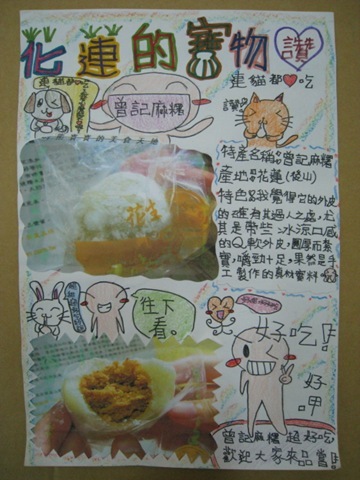 花蓮的寶物 讚
連貓都❤吃
讚
曾記麻糬
特產名稱:曾記麻糬
產地:花蓮(後山)
特色:我覺得它的外皮
的確有其過人之處,尤
其是帶些冰涼口感
的Q軟外皮,圓厚而紮
實,嚼勁十足,果然是手
工製作的真材實料
花生
往下
看。
好吃!
好
呷
曾記麻糬 超好吃
歡迎大家來品嘗!